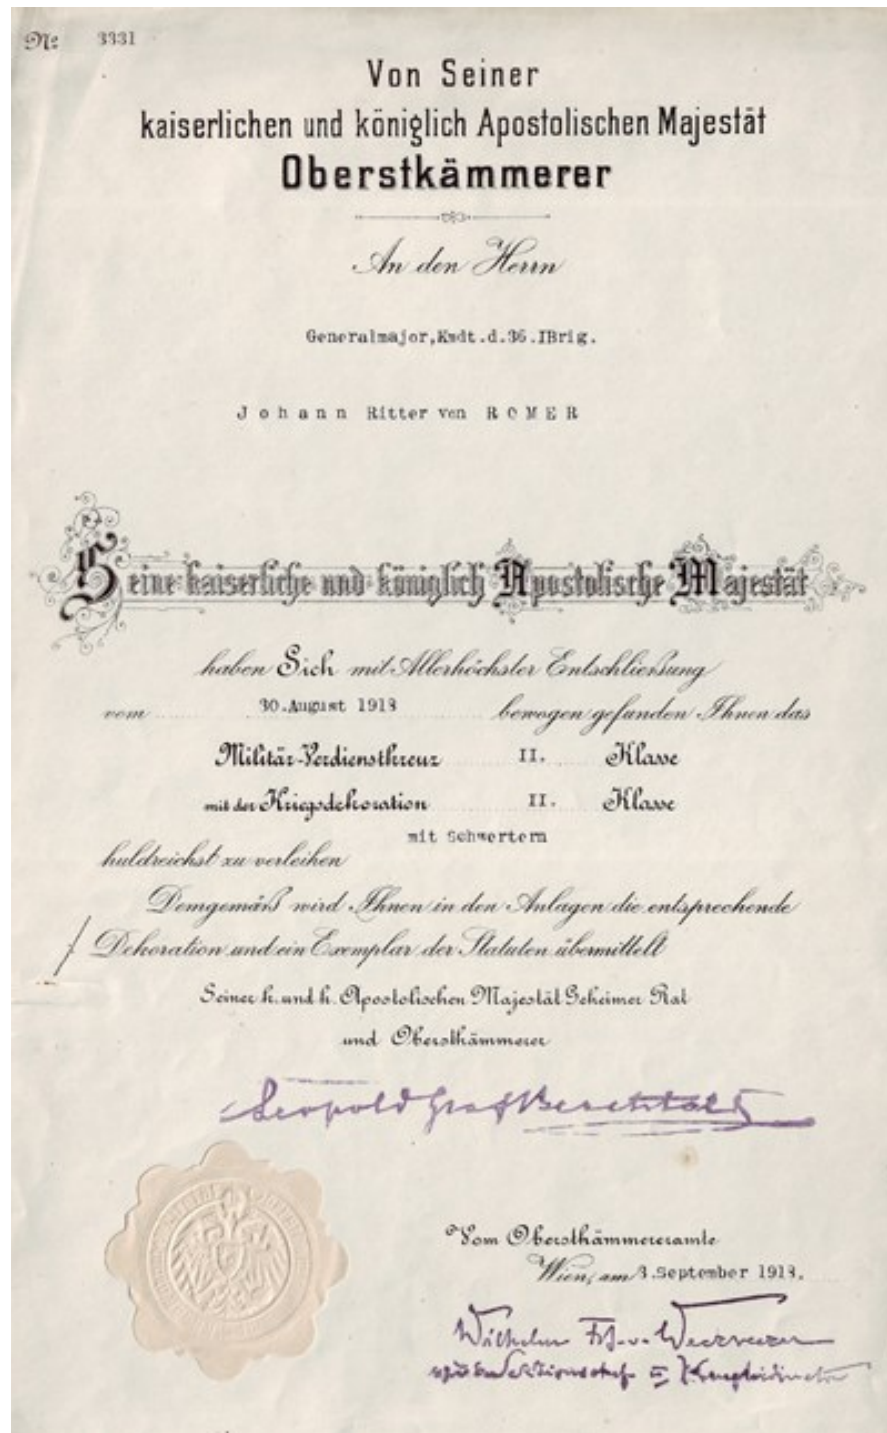 No 3331
Von Seiner
kaiserlichen und königlich Apostolischen Majestät
Oberstkämmerer
An den Herrn
Generalmajor,Kmdt.d.36.IBrig.
Johann Ritter von ROMER
Seine kaiserliche und königlich Apostolische Majestät
haben Sich mit Allerhöchster Entschließung
vom 30.August 1918 bewogen gefunden Ihnen das
Militär-Verdienstkreuz II. Klasse
mit der Kriegsdekoration II. Klasse
mit Schwertern
huldreichst zu verleihen
Demgemäß wird Ihnen in den Anlagen die entsprechende
/ Dekoration und ein Exemplar der Statuten übermittelt
Seiner k. und k. Apostolischen Majestät Geheimer Rat
und Oberstkämmerer
Leopold Graf Berchtold
Vom Oberstkämmereramte
Wien, am 3.September 1918.
Wilhelm Frh. v.